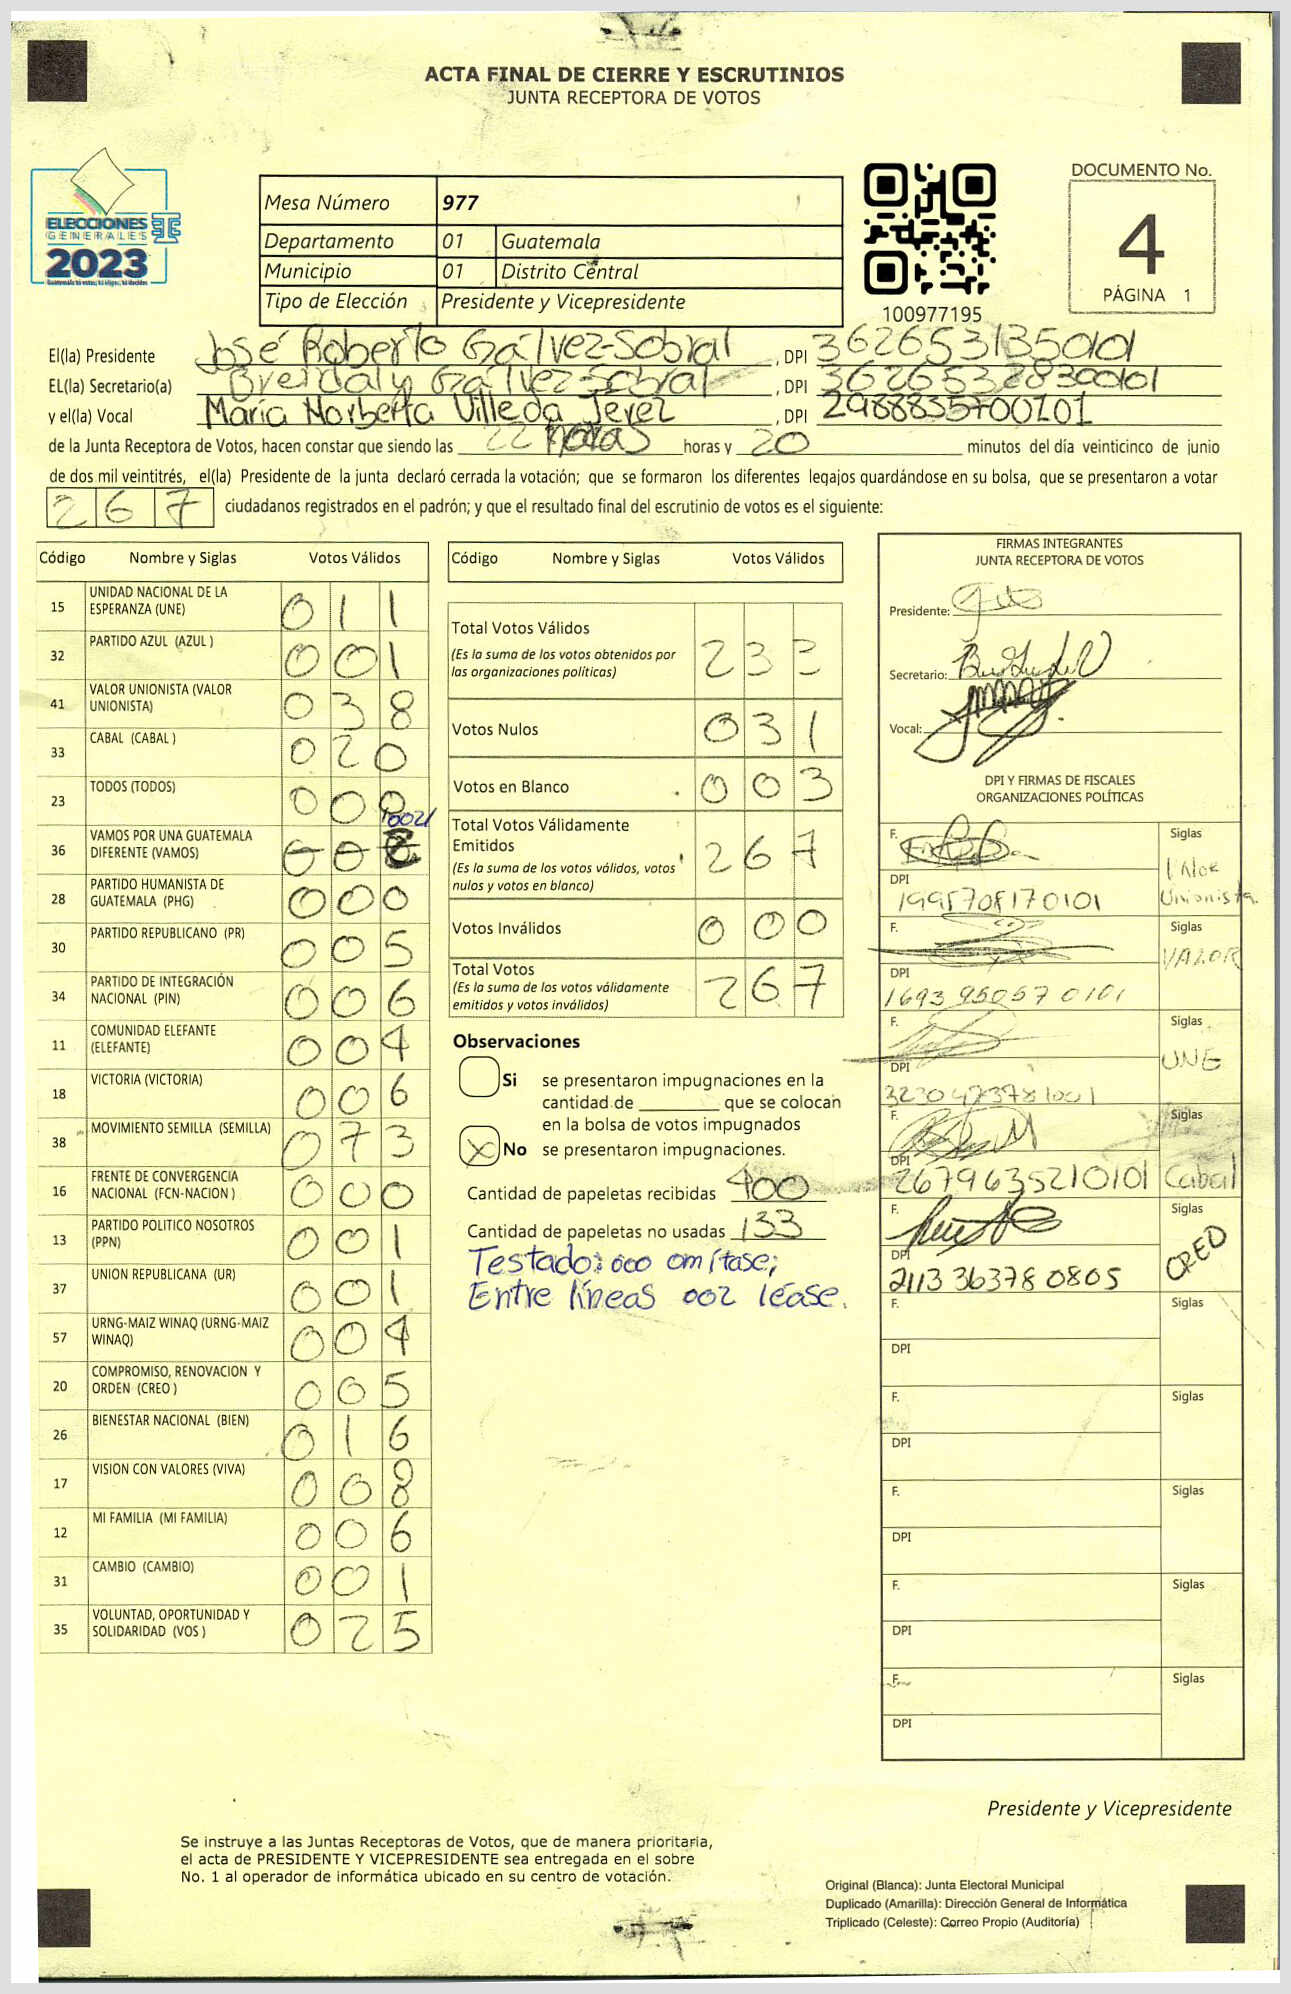 ACTA FINAL DE CIERRE Y ESCRUTINIOS
JUNTA RECEPTORA DE VOTOS
ELECCIONES
GENERALES
2023
Mesa Número 977
Departamento 01 Guatemala
Municipio 01 Distrito Central
Tipo de Elección Presidente y Vicepresidente
100977195
DOCUMENTO No.
4
PÁGINA 1
El(la) Presidente José Roberto Gálvez-Sobral , DPI 3626531350101
EL(la) Secretario(a) Brendaly Gálvez-Sobral , DPI
y el(la) Vocal María Norberta Villeda Jerez , DPI 2988835700101
de la Junta Receptora de Votos, hacen constar que siendo las 22 horas horas y 20 minutos del día veinticinco de junio
de dos mil veintitrés, el(la) Presidente de la junta declaró cerrada la votación; que se formaron los diferentes legajos guardándose en su bolsa, que se presentaron a votar
267 ciudadanos registrados en el padrón; y que el resultado final del escrutinio de votos es el siguiente:
Código Nombre y Siglas Votos Válidos
15 UNIDAD NACIONAL DE LA ESPERANZA (UNE) 011
32 PARTIDO AZUL (AZUL ) 001
41 VALOR UNIONISTA (VALOR UNIONISTA) 038
33 CABAL (CABAL ) 020
23 TODOS (TODOS) 000
36 VAMOS POR UNA GUATEMALA DIFERENTE (VAMOS) 002
28 PARTIDO HUMANISTA DE GUATEMALA (PHG) 000
30 PARTIDO REPUBLICANO (PR) 005
34 PARTIDO DE INTEGRACIÓN NACIONAL (PIN) 006
11 COMUNIDAD ELEFANTE (ELEFANTE) 004
18 VICTORIA (VICTORIA) 006
38 MOVIMIENTO SEMILLA (SEMILLA) 073
16 FRENTE DE CONVERGENCIA NACIONAL (FCN-NACION ) 000
13 PARTIDO POLITICO NOSOTROS (PPN) 001
37 UNION REPUBLICANA (UR) 001
57 URNG-MAIZ WINAQ (URNG-MAIZ WINAQ) 004
20 COMPROMISO, RENOVACION Y ORDEN (CREO ) 005
26 BIENESTAR NACIONAL (BIEN) 016
17 VISION CON VALORES (VIVA) 008
12 MI FAMILIA (MI FAMILIA) 006
31 CAMBIO (CAMBIO) 001
35 VOLUNTAD, OPORTUNIDAD Y SOLIDARIDAD (VOS ) 025
Código Nombre y Siglas Votos Válidos
Total Votos Válidos 233
(Es la suma de los votos obtenidos por
las organizaciones políticas)
Votos Nulos 031
Votos en Blanco 003
Total Votos Válidamente
Emitidos 267
(Es la suma de los votos válidos, votos
nulos y votos en blanco)
Votos Inválidos 000
Total Votos 267
(Es la suma de los votos válidamente
emitidos y votos inválidos)
Observaciones
Si se presentaron impugnaciones en la
cantidad de ________ que se colocan
en la bolsa de votos impugnados
X No se presentaron impugnaciones.
Cantidad de papeletas recibidas 400
Cantidad de papeletas no usadas 133
Testado: 000 omítase;
Entre líneas 002 léase.
FIRMAS INTEGRANTES
JUNTA RECEPTORA DE VOTOS
Presidente:
Secretario:
Vocal:
DPI Y FIRMAS DE FISCALES
ORGANIZACIONES POLÍTICAS
F. Siglas Valor
DPI 1995708170101 Unionista.
F. Siglas VALOR
DPI 1693950570101
F. Siglas UNE
DPI 3230473781001
F. Siglas Cabal
DPI 2679635210101
F. Siglas CREO
DPI 2113363780805
F. Siglas
DPI
F. Siglas
DPI
F. Siglas
DPI
F. Siglas
DPI
F. Siglas
DPI
Presidente y Vicepresidente
Se instruye a las Juntas Receptoras de Votos, que de manera prioritaria,
el acta de PRESIDENTE Y VICEPRESIDENTE sea entregada en el sobre
No. 1 al operador de informática ubicado en su centro de votación.
Original (Blanca): Junta Electoral Municipal
Duplicado (Amarilla): Dirección General de Informática
Triplicado (Celeste): Correo Propio (Auditoría)